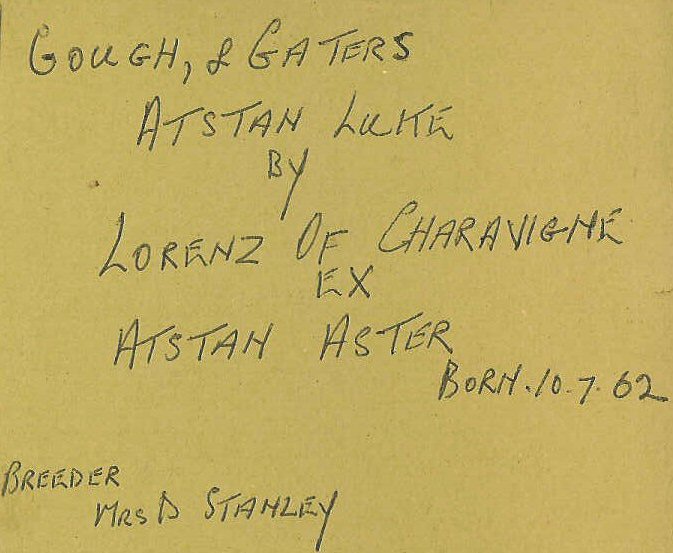 GOUGH, & GATERS
ATSTAN LUKE
BY
LORENZ OF CHARAVIGNE
EX
ATSTAN ASTER
BORN.10.7.62
BREEDER
MRS D STANLEY